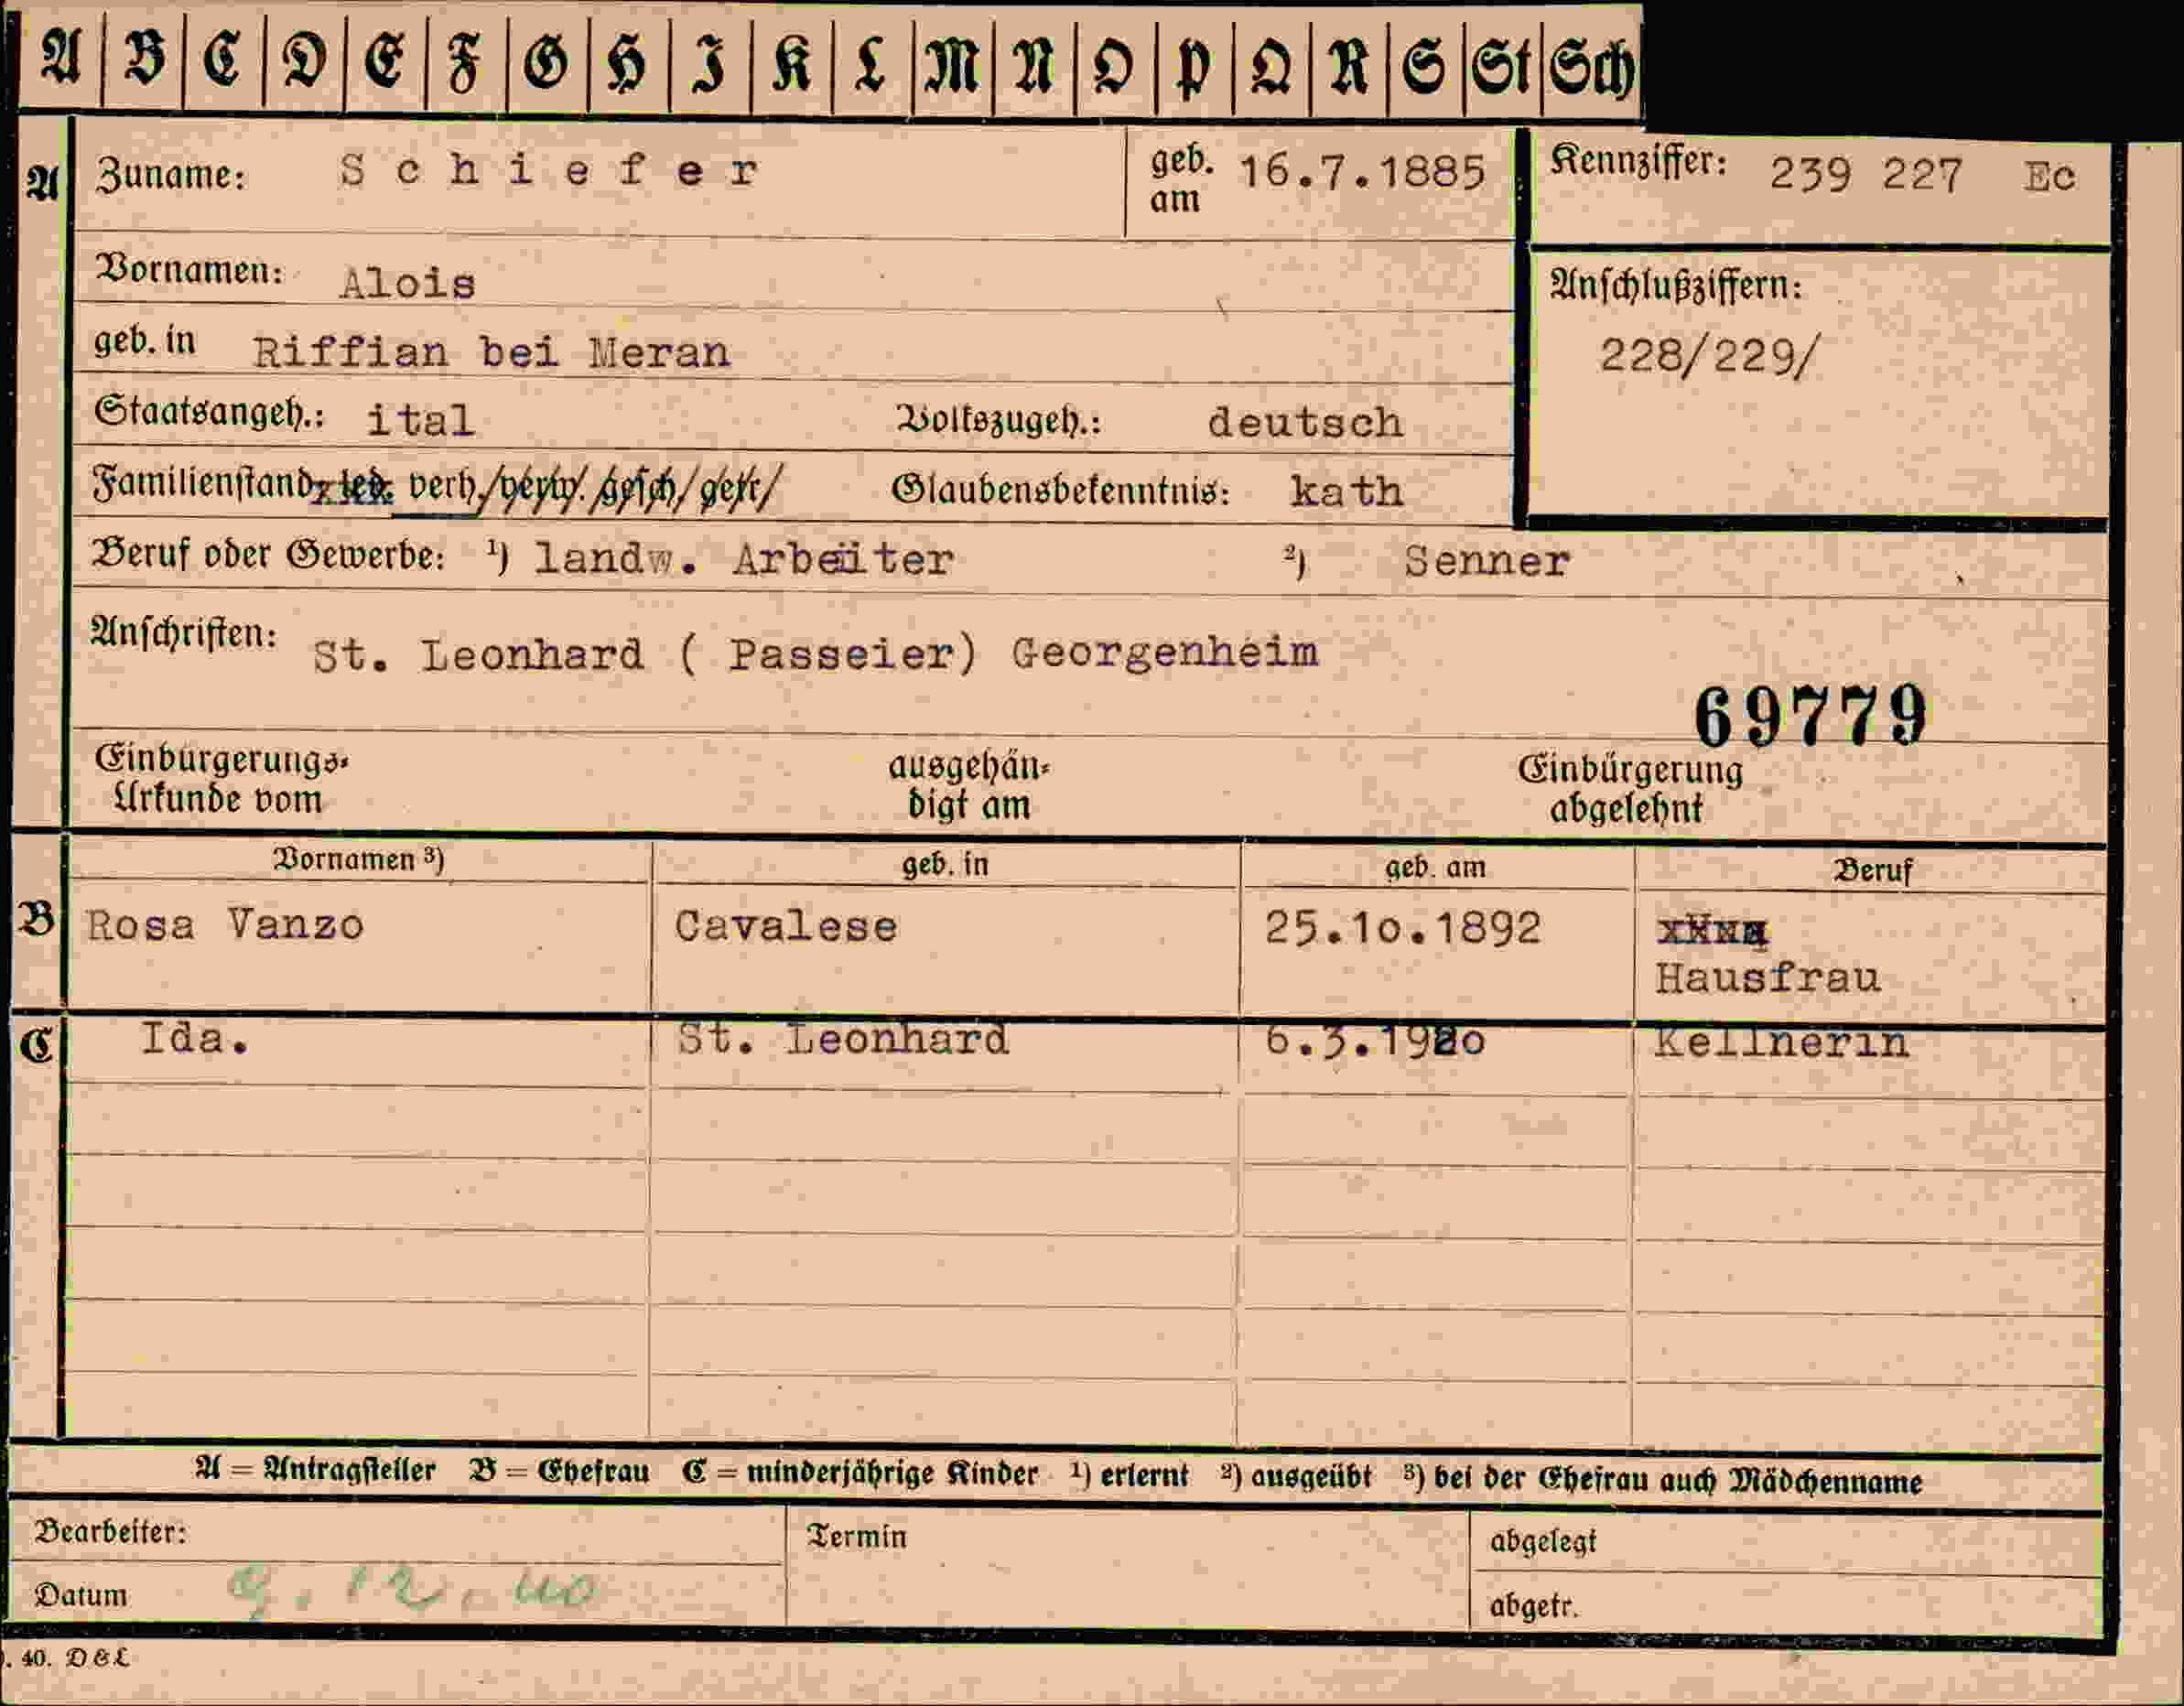 A B C D E F G H I K L M N O P Q R S St Sch
A Zuname: Schiefer geb. am 16.7.1885 Kennziffer: 239 227 Ec
Vornamen: Alois Anschlußziffern:
geb. in Riffian bei Meran 228/229/
Staatsangeh.: ital Volkszugeh.: deutsch
Familienstand: led. verh./verw./gesch/getr/ Glaubensbekenntnis: kath
Beruf oder Gewerbe: ¹) landw. Arbeiter ²) Senner
Anschriften: St. Leonhard ( Passeier) Georgenheim
69779
Einbürgerungs- ausgehän- Einbürgerung
Urkunde vom digt am abgelehnt
Vornamen ³) geb. in geb. am Beruf
B Rosa Vanzo Cavalese 25.10.1892
Hausfrau
C Ida. St. Leonhard 6.3.1920 Kellnerin
A = Antragsteller B = Ehefrau C = minderjährige Kinder ¹) erlernt ²) ausgeübt ³) bei der Ehefrau auch Mädchenname
Bearbeiter: Termin abgelegt
Datum 9.12.40 abgetr.
. 40. D&L